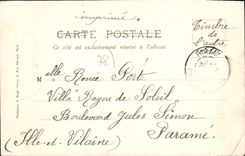 imprimé
Timbre
de
l'autre
CARTE POSTALE
Ce côté est exclusivement réservé à l'adresse
Melle Renée Port
Villa Rayon de Soleil,
Boulevard Jules Simon
Paramé.
(Ille-et-Vilaine)